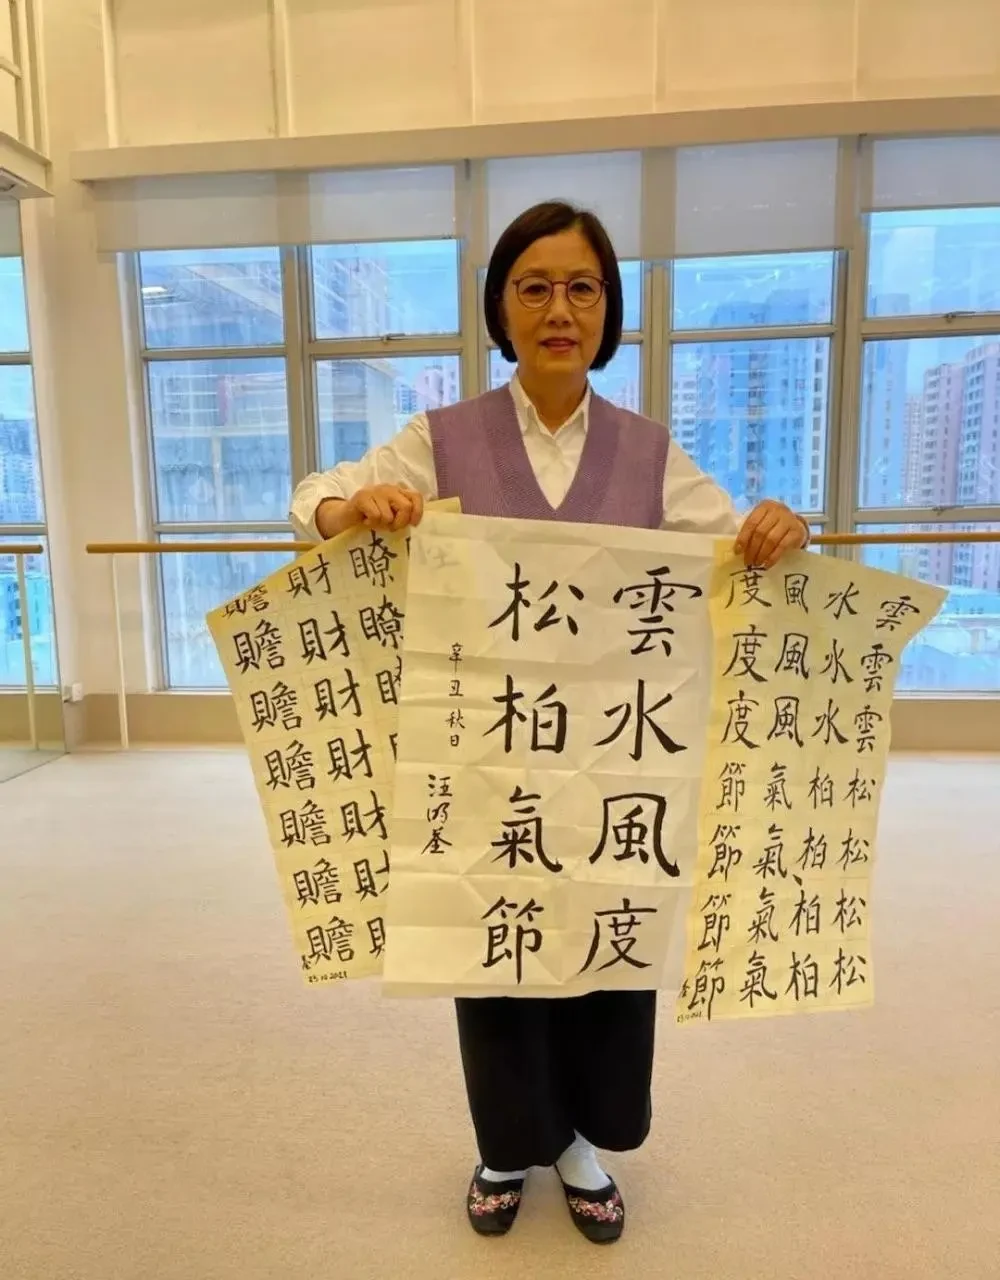 雲雲雲松松松松
水水水柏柏柏柏
風風風氣氣氣氣
度度度節節節節
荃
雲水風度
松柏氣節
辛丑秋日
汪明荃
瞭瞭
財財財財財財
贍贍贍贍贍贍贍
荃
23 10 2021